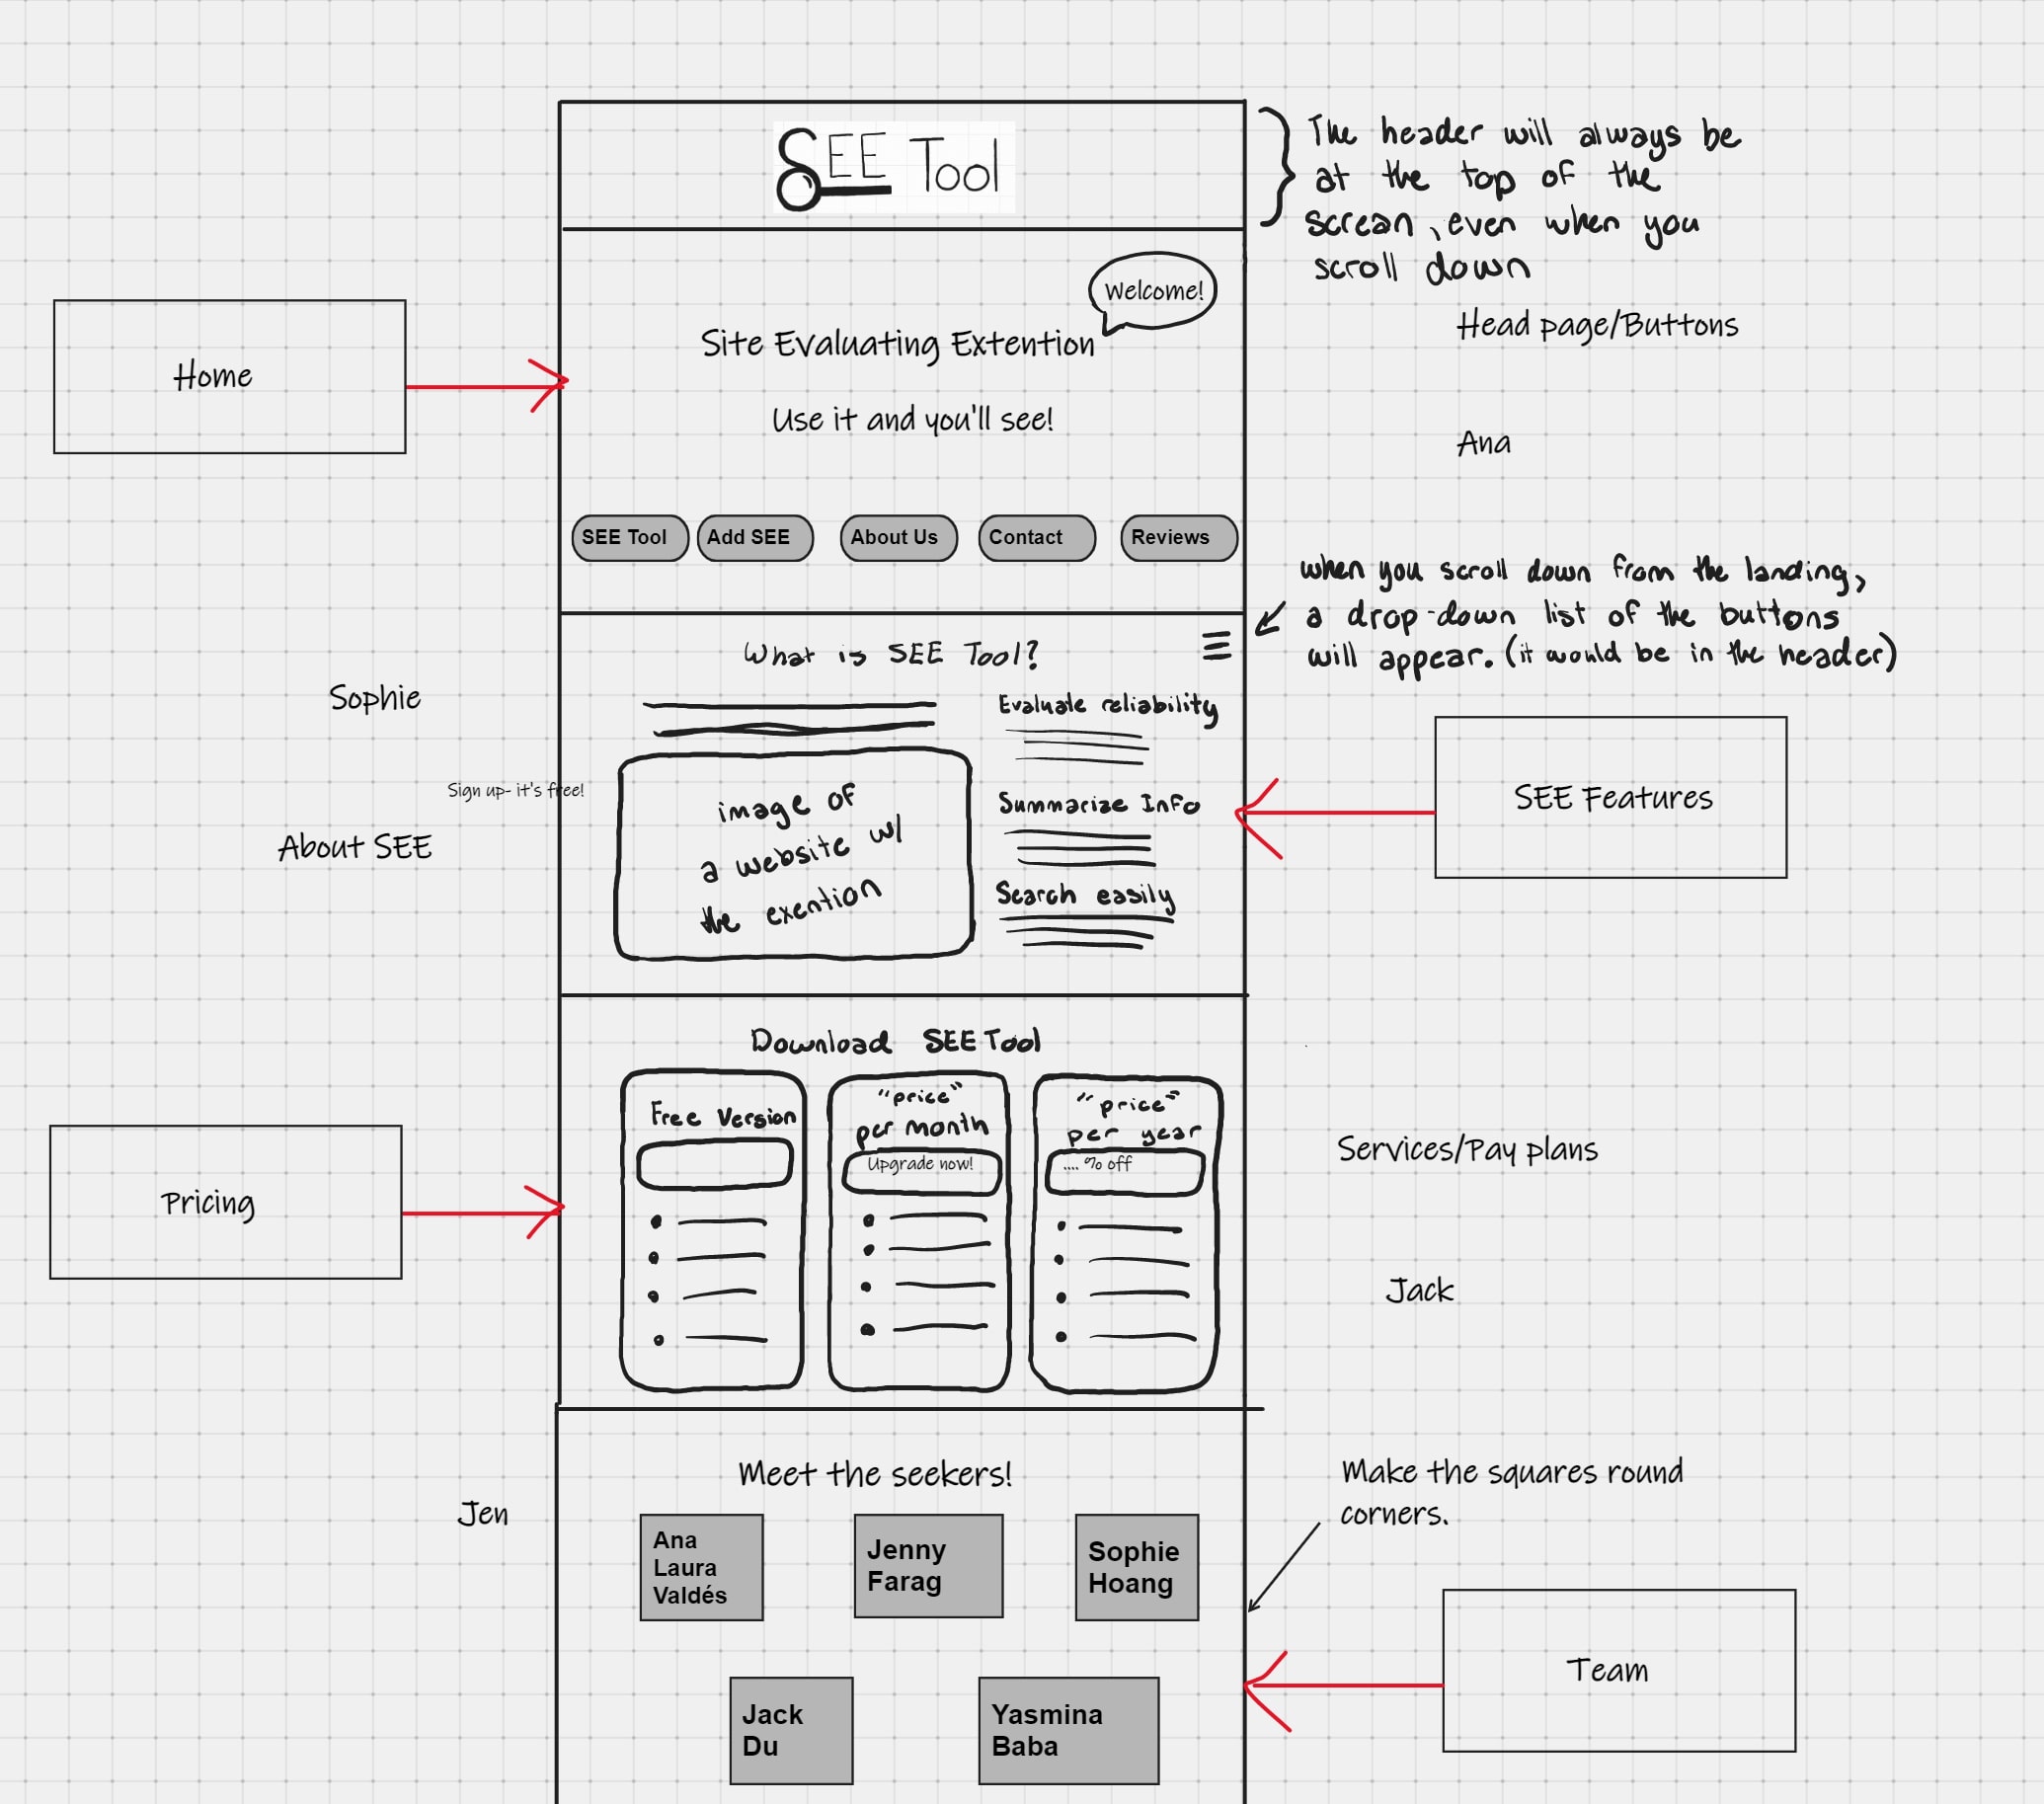 SEE Tool
The header will always be
at the top of the
screan, even when you
scroll down
Welcome!
Head page/Buttons
Site Evaluating Extention
Home
Use it and you'll see!
Ana
SEE Tool
Add SEE
About Us
Contact
Reviews
when you scroll down from the landing,
a drop-down list of the buttons
will appear. (it would be in the header)
What is SEE Tool?
Sophie
Evaluate reliability
Sign up- it's free!
image of
a website w/
the exention
Summarize Info
SEE Features
About SEE
Search easily
Download SEE Tool
Free Version
"price"
per month
Upgrade now!
"price"
per year
.... % off
Services/Pay plans
Pricing
Jack
Meet the seekers!
Make the squares round
corners.
Jen
Ana
Laura
Valdés
Jenny
Farag
Sophie
Hoang
Team
Jack
Du
Yasmina
Baba